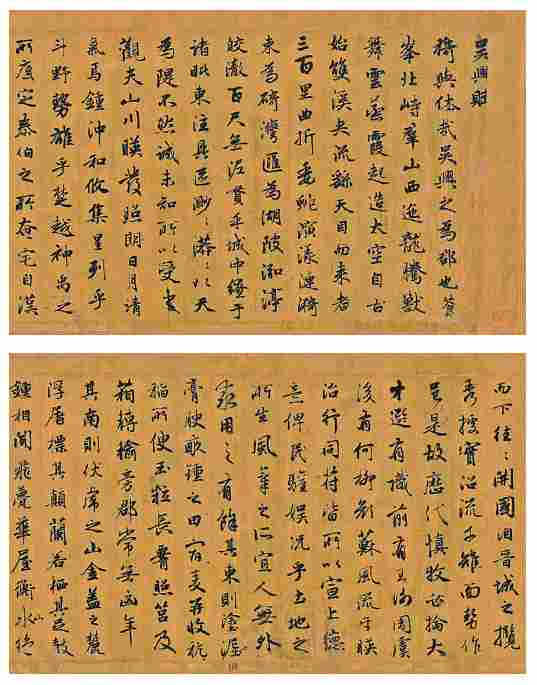 吳興賦
猗與休哉吳興之為郡也蒼
峯北峙羣山西迤龍騰獸
舞雲蒸霞起造太空自古
始雙溪夾流繇天目而來者
三百里曲折委蛇演漾漣漪
束為碕灣匯為湖陂泓渟
皎澈百尺無泥貫乎城中繚于
諸毗東注具區渺漭々以天
為隄不然誠未知所以受之
觀夫山川映發照朗日月清
氣焉鍾沖和攸集星列乎
斗野勢雄乎楚越神禹之
所底定泰伯之所奄宅自漢
而下往々開國洎晉城之攬
秀據實沿流千雉面勢作
邑是故歷代慎牧必掄大
才選有識前有王謝周虞
後有何柳顏蘇風流互映
治行同符皆所以宣上德
意俾民驩娛況乎土地之
所生風氣之所宜人無外
求用之有餘其東則塗泥
膏腴畝鍾之田宿麥再收秔
稻所便玉粒長腰照筥及
箱轉輸旁郡常無凶年
其南則伏虎之山金蓋之麓
浮屠標其巔蘭若棲其足鼓
鍾相聞飛甍華屋衡山水絕